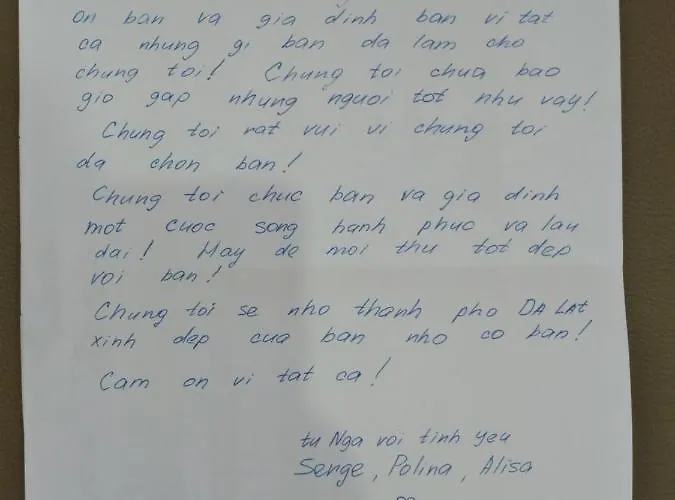 on ban va gia đinh ban vi tat
ca nhung gi ban da lam cho
chung toi! Chung toi chua bao
gio gap nhung nguoi tot nhu vay!
Chung toi rat vui vi chung toi
da chon ban!
Chung toi chuc ban va gia dinh
mot cuoc song hanh phuc va lau
dai! Hay de moi thu tot dep
voi ban!
Chung toi se nho thanh pho DA LAt
xinh dep cua ban nho co ban!
Cam on vi tat ca!
tu Nga voi tinh yeu
Serge, Polina, Alisa